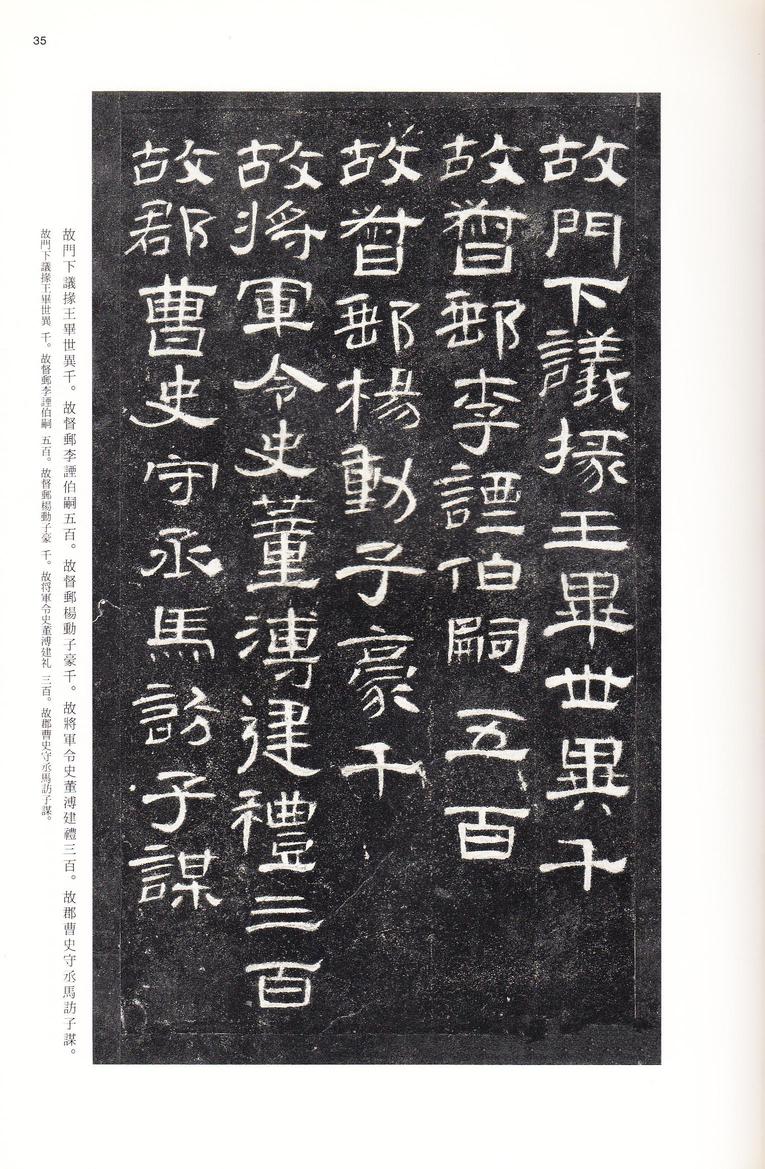 35
故門下議掾王畢世異千
故督郵李諲伯嗣五百
故督郵楊動子豪千
故將軍令史董溥建禮三百
故郡曹史守丞馬訪子謀
故門下議掾王畢世異千。故督郵李諲伯嗣五百。故督郵楊動子豪千。故將軍令史董溥建禮三百。故郡曹史守丞馬訪子謀。
故門下議掾王畢世異 千。故督郵李諲伯嗣 五百。故督郵楊動子豪 千。故将軍令史董溥建礼 三百。故郡曹史守丞馬訪子謀。